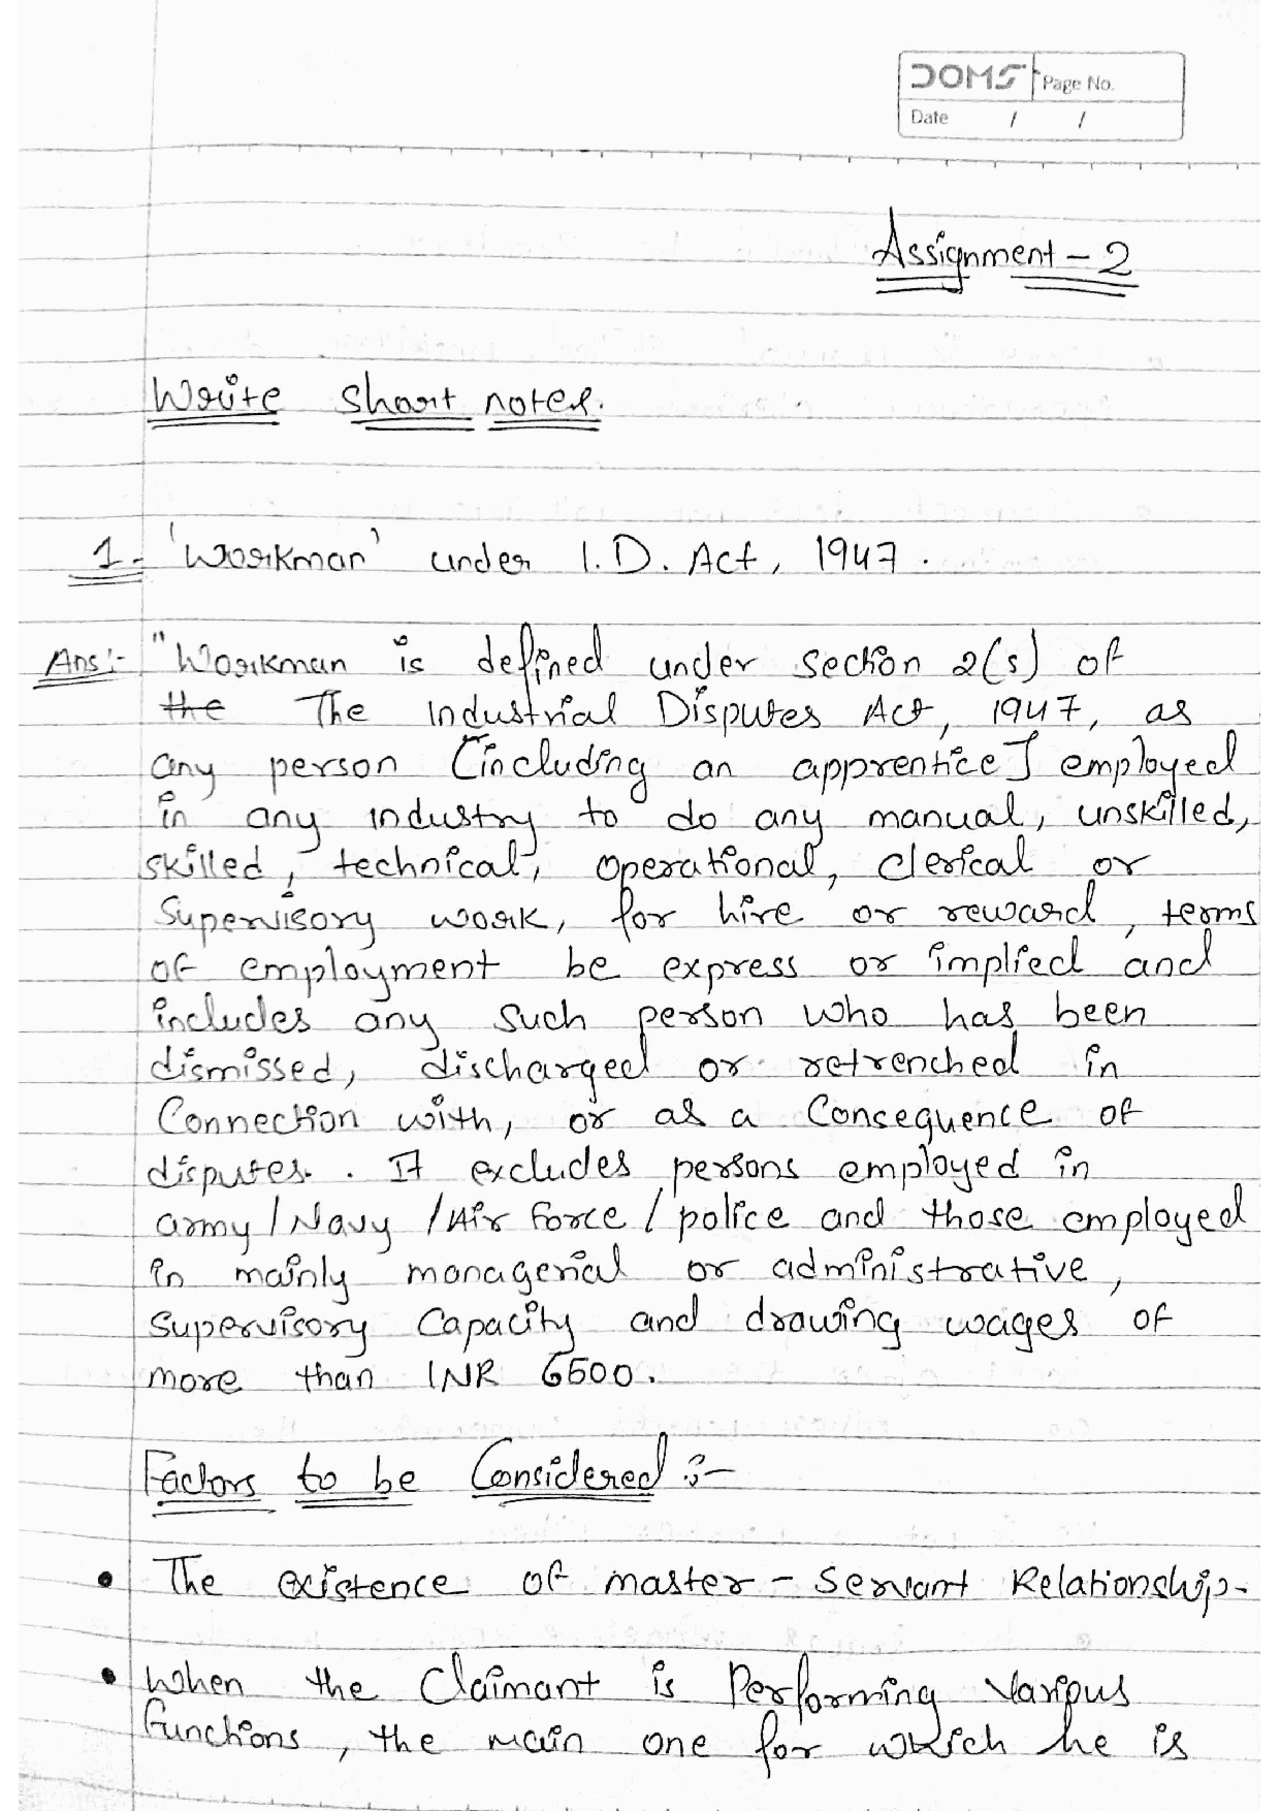 DOMS Page No.
Date / /
Assignment - 2
Write short notes.
1. 'Workman' under I.D. Act, 1947.
Ans:- "Workman is defined under section 2(s) of
the The Industrial Disputes Act, 1947, as
any person [including an apprentice] employed
in any industry to do any manual, unskilled,
skilled, technical, operational, clerical or
Supervisory work, for hire or reward, terms
of employment be express or implied and
includes any such person who has been
dismissed, discharged or retrenched in
Connection with, or as a Consequence of
disputes. It excludes persons employed in
army/Navy/Air Force/police and those employed
in mainly managerial or administrative,
supervisory Capacity and drawing wages of
more than INR 6500.
Factors to be Considered :-
• The existence of master - Servant Relationship.
• When the Claimant is Performing Various
functions, the main one for which he is